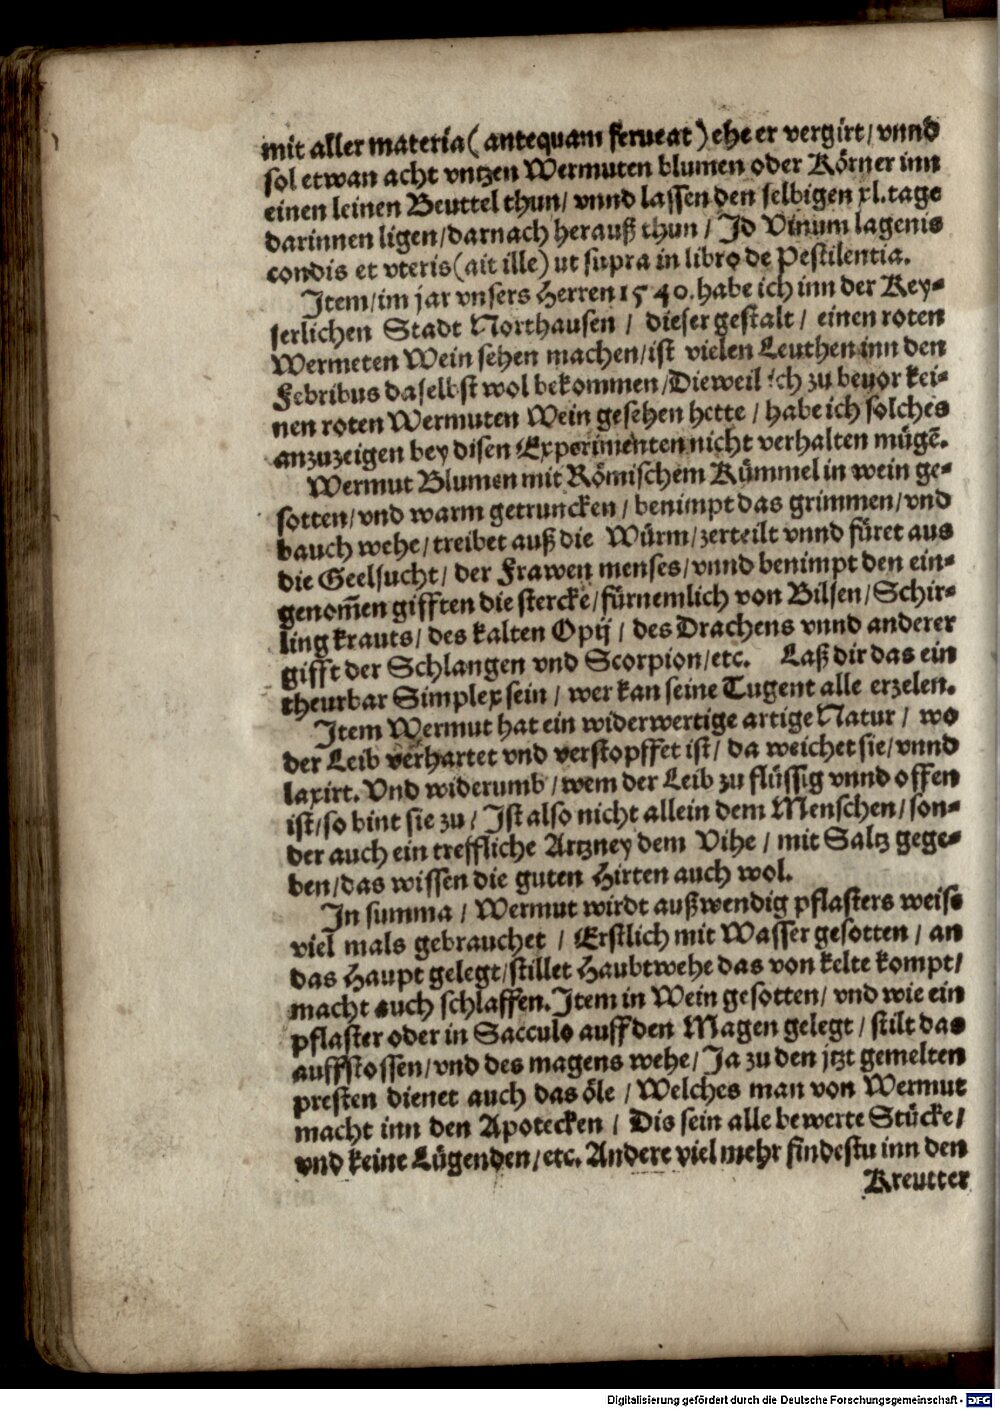 mit aller materia ( antequam ferueat ) ehe er vergirt / vnnd
sol etwan acht vntzen Wermuten blumen oder Körner inn
einen leinen Beuttel thun / vnnd lassen den selbigen xl. tage
darinnen ligen / darnach herauß thun / Id Vinum lagenis
condis et vteris ( ait ille ) ut supra in libro de Pestilentia.
Item / im jar vnsers Herren 1540. habe ich inn der Key-
serlichen Stadt Northausen / dieser gestalt / einen roten
Wermeten Wein sehen machen / ist vielen Leuthen inn den
Febribus daselbst wol bekommen / Dieweil ich zu beuor kei-
nen roten Wermuten Wein gesehen hette / habe ich solches
anzuzeigen bey disen Experimenten nicht verhalten mügē.
Wermut Blumen mit Römischem Kümmel in wein ge-
sotten / vnd warm getruncken / benimpt das grimmen / vnd
bauch wehe / treibet auß die Würm / zerteilt vnnd füret aus
die Geelsucht / der Frawen menses / vnnd benimpt den ein-
genom̃en gifften die stercke / fürnemlich von Bilsen / Schir-
ling krauts / des kalten Opij / des Drachens vnnd anderer
gifft der Schlangen vnd Scorpion / etc. Laß dir das ein
theurbar Simplex sein / wer kan seine Tugent alle erzelen.
Item Wermut hat ein widerwertige artige Natur / wo
der Leib verhartet vnd verstopffet ist / da weichet sie / vnnd
laxirt. Vnd widerumb / wem der Leib zu flüssig vnnd offen
ist / so bint sie zu / Ist also nicht allein dem Menschen / son-
der auch ein treffliche Artzney dem Vihe / mit Saltz gege-
ben / das wissen die guten Hirten auch wol.
In summa / Wermut wirdt außwendig pflasters weise
viel mals gebrauchet / Erstlich mit Wasser gesotten / an
das Haupt gelegt / stillet Haubtwehe das von kelte kompt /
macht auch schlaffen. Item in Wein gesotten / vnd wie ein
pflaster oder in Sacculo auff den Magen gelegt / stilt das
auffstossen / vnd des magens wehe / Ja zu den jtzt gemelten
presten dienet auch das öle / Welches man von Wermut
macht inn den Apotecken / Dis sein alle bewerte Stücke /
vnd keine Lügenden / etc. Andere viel mehr findestu inn den
Kreutter
Digitalisierung gefördert durch die Deutsche Forschungsgemeinschaft - DFG